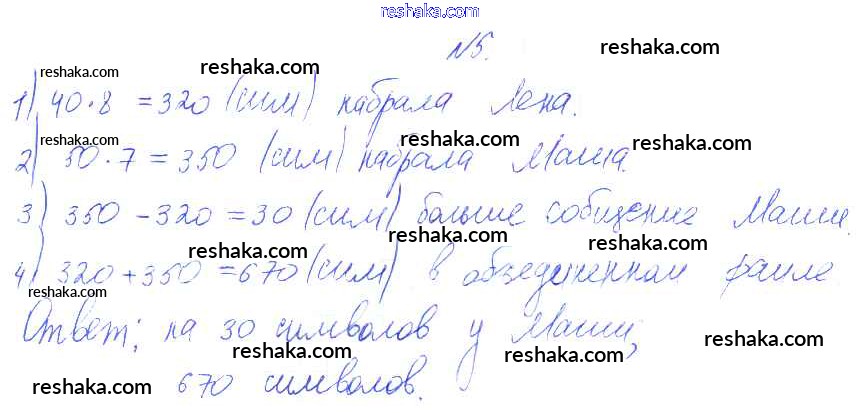 reshaka.com
№5. reshaka.com
reshaka.com reshaka.com
1) 40·8 = 320 (сим) набрала Лена.
reshaka.com reshaka.com reshaka.com
2) 50·7 = 350 (сим) набрала Маша.
reshaka.com reshaka.com reshaka.com
3) 350 - 320 = 30 (сим) больше сообщение Маши.
reshaka.com reshaka.com
4) 320 + 350 = 670 (сим) в объединенном файле.
reshaka.com
Ответ: на 30 символов у Маши,
reshaka.com reshaka.com reshaka.com
670 символов.
reshaka.com reshaka.com